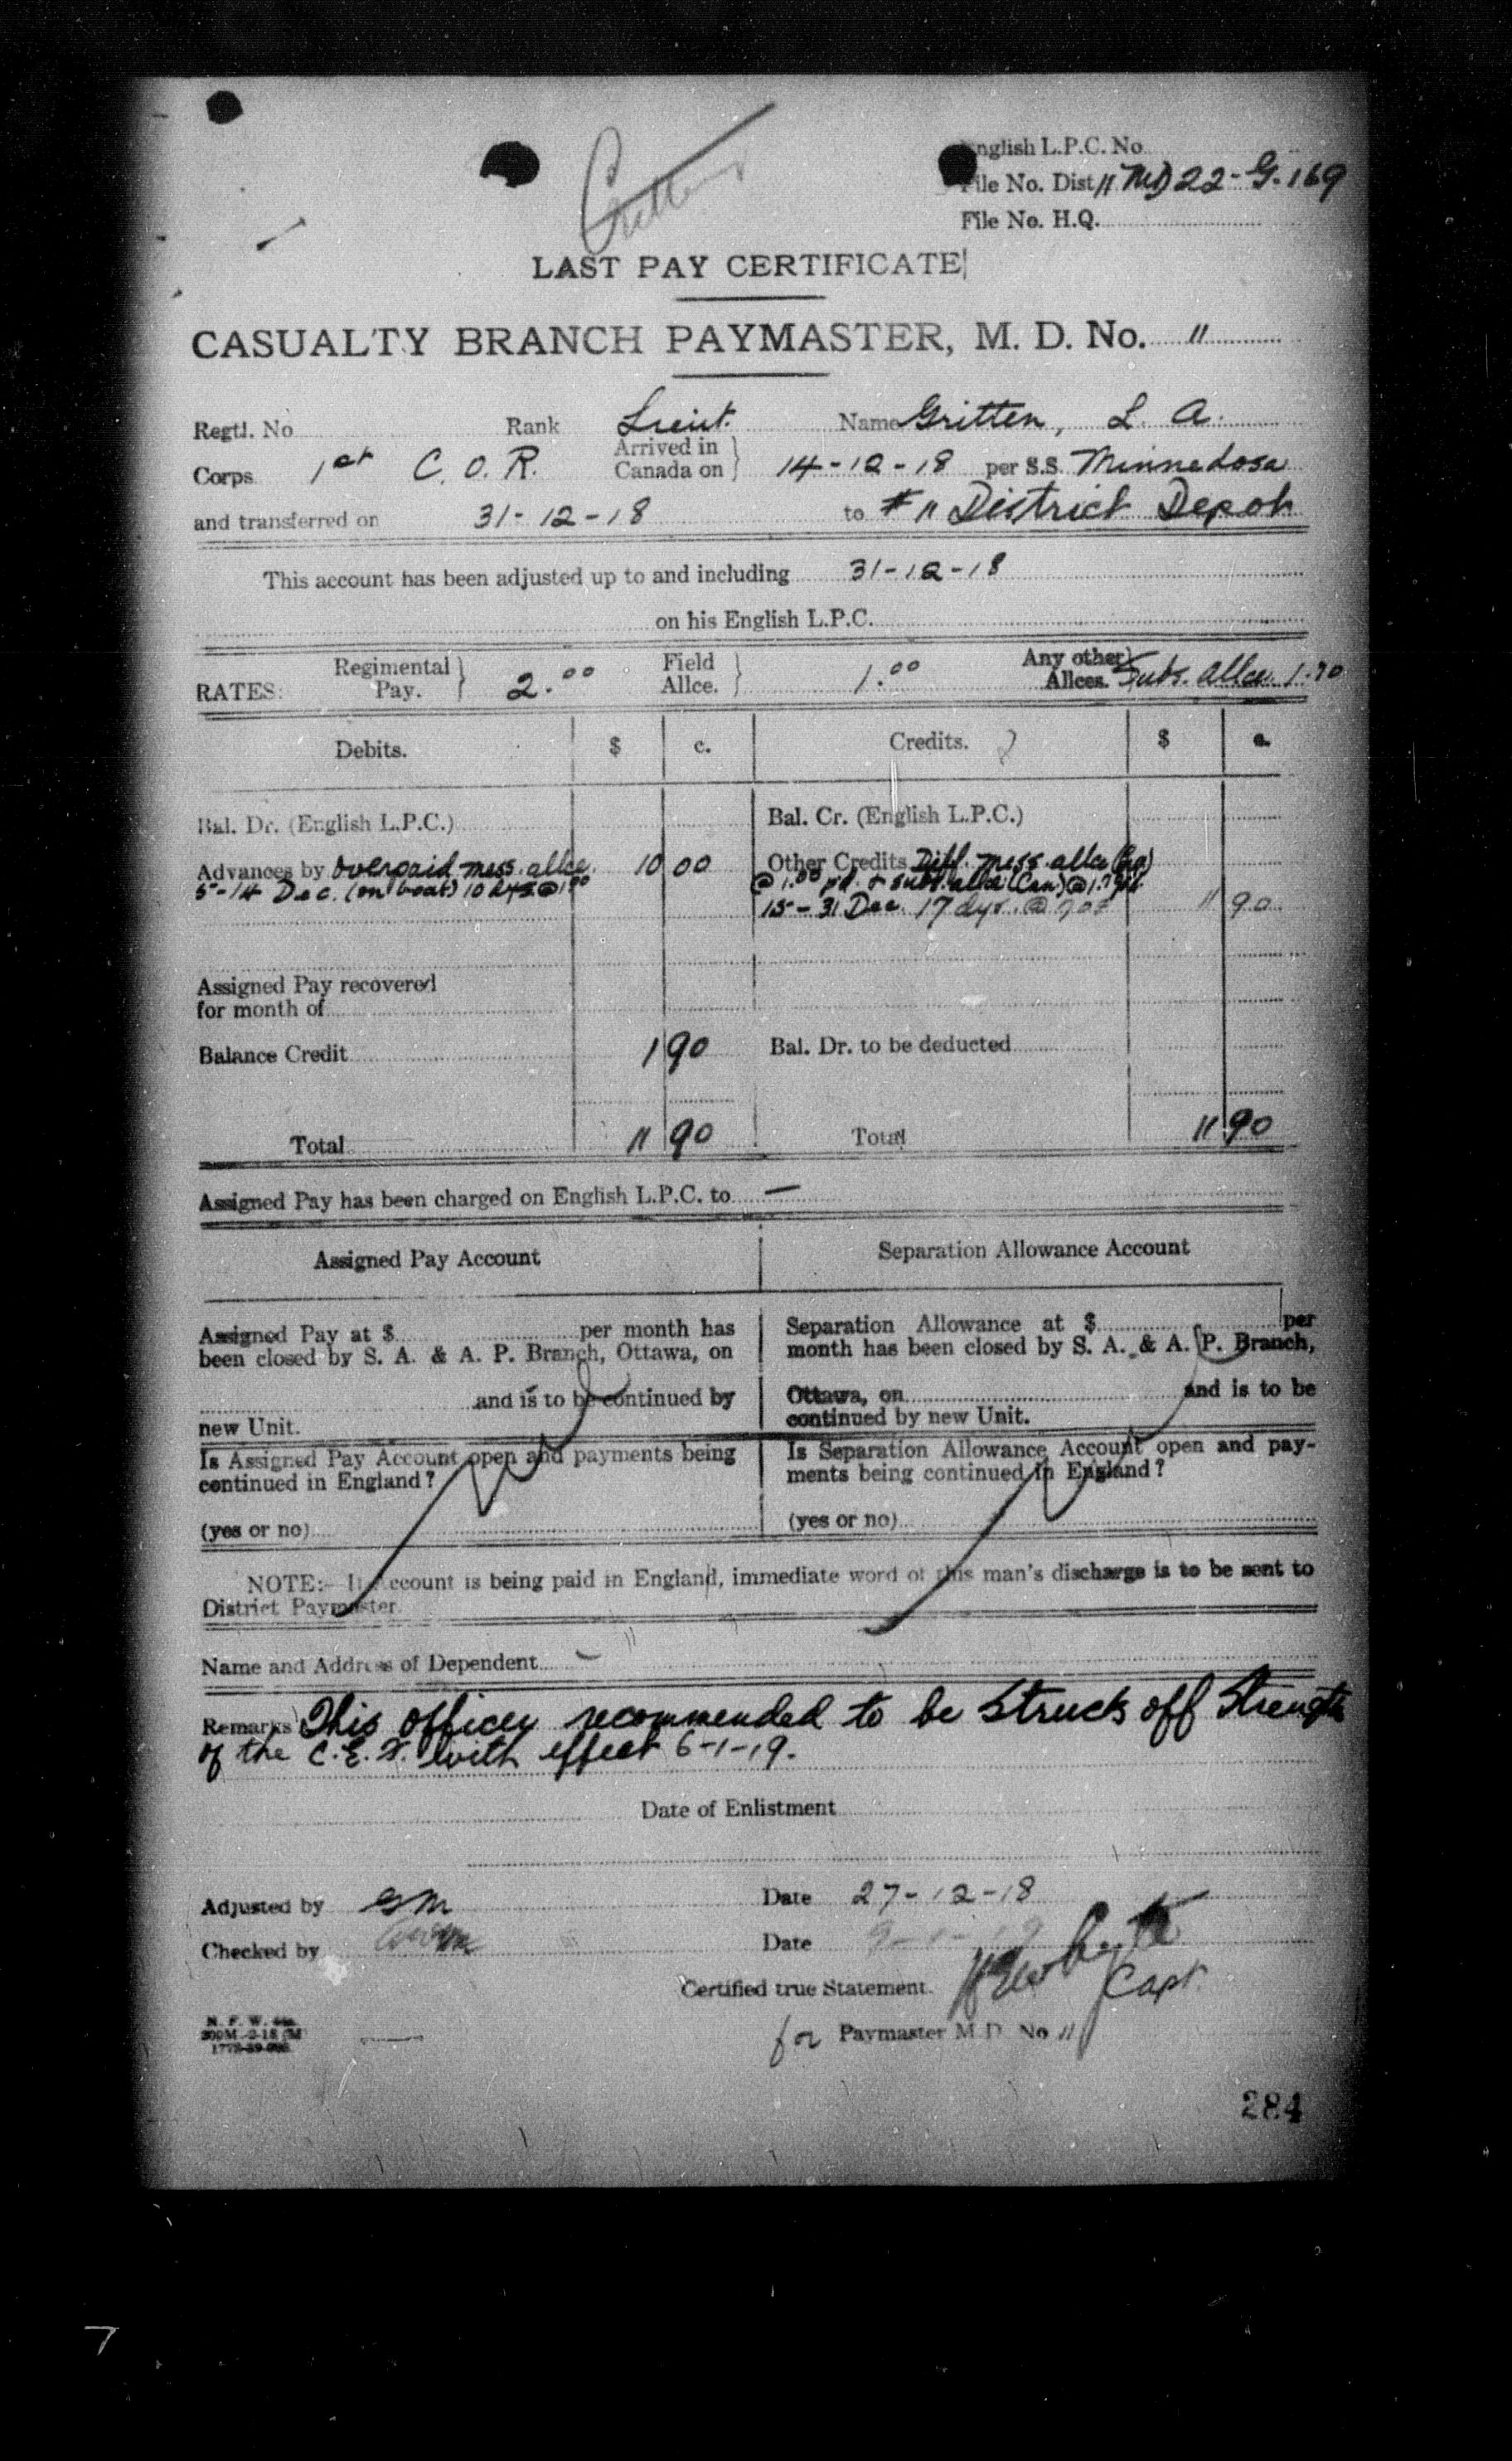 Gritten
English L.P.C. No.
File No. Dist 11 MD 22-G.169
File No. H.Q.
LAST PAY CERTIFICATE
CASUALTY BRANCH PAYMASTER, M. D. No. 11
Regtl. No Rank Lieut. Name Gritten, L. A.
Corps 1st C.O.R. Arrived in Canada on } 14-12-18 per S.S. Minnedosa
and transferred on 31-12-18 to # 11 District Depot
This account has been adjusted up to and including 31-12-18
on his English L.P.C.
RATES: Regimental Pay. } 2.00 Field Allce. } 1.00 Any other Allces. } Subs. Allce 1.70
Debits. $ c. Credits. $ c.
Bal. Dr. (English L.P.C.) Bal. Cr. (English L.P.C.)
Advances by overpaid mess. allce. 10 00 Other Credits Diff. mess. allce
5-14 Dec. (on boat) 10 dys @ 1.00 @ 1.00 pd. & subs. allce (Can) @ 1.70
15-31 Dec. 17 dys. @ 70¢ 11 90
Assigned Pay recovered
for month of
Balance Credit 1 90 Bal. Dr. to be deducted
Total 11 90 Total 11 90
Assigned Pay has been charged on English L.P.C. to —
Assigned Pay Account Separation Allowance Account
Assigned Pay at $ per month has
been closed by S. A. & A. P. Branch, Ottawa, on
and is to be continued by
new Unit.
Separation Allowance at $ per
month has been closed by S. A. & A. P. Branch,
Ottawa, on and is to be
continued by new Unit.
Is Assigned Pay Account open and payments being
continued in England?
(yes or no)
Is Separation Allowance Account open and pay-
ments being continued in England?
(yes or no)
NOTE:— If Account is being paid in England, immediate word of this man's discharge is to be sent to
District Paymaster.
Name and Address of Dependent
Remarks This officer recommended to be struck off strength
of the C.E.F. with effect 6-1-19.
Date of Enlistment
Adjusted by Date 27-12-18
Checked by Date 9-1-19
Certified true Statement.
Capt.
for Paymaster M.D. No 11
284